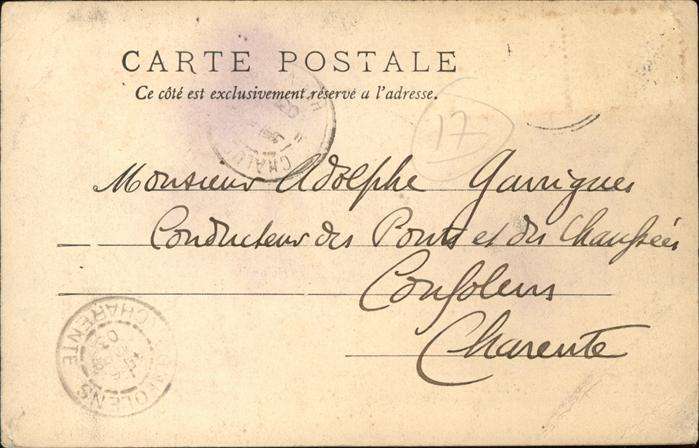 CARTE POSTALE
Ce côté est exclusivement réservé a l'adresse.
17
Monsieur Adolphe Garrigues
Conducteur des Ponts et des Chaussées
Confolens
Charente
CONFOLENS
CHARENTE
03